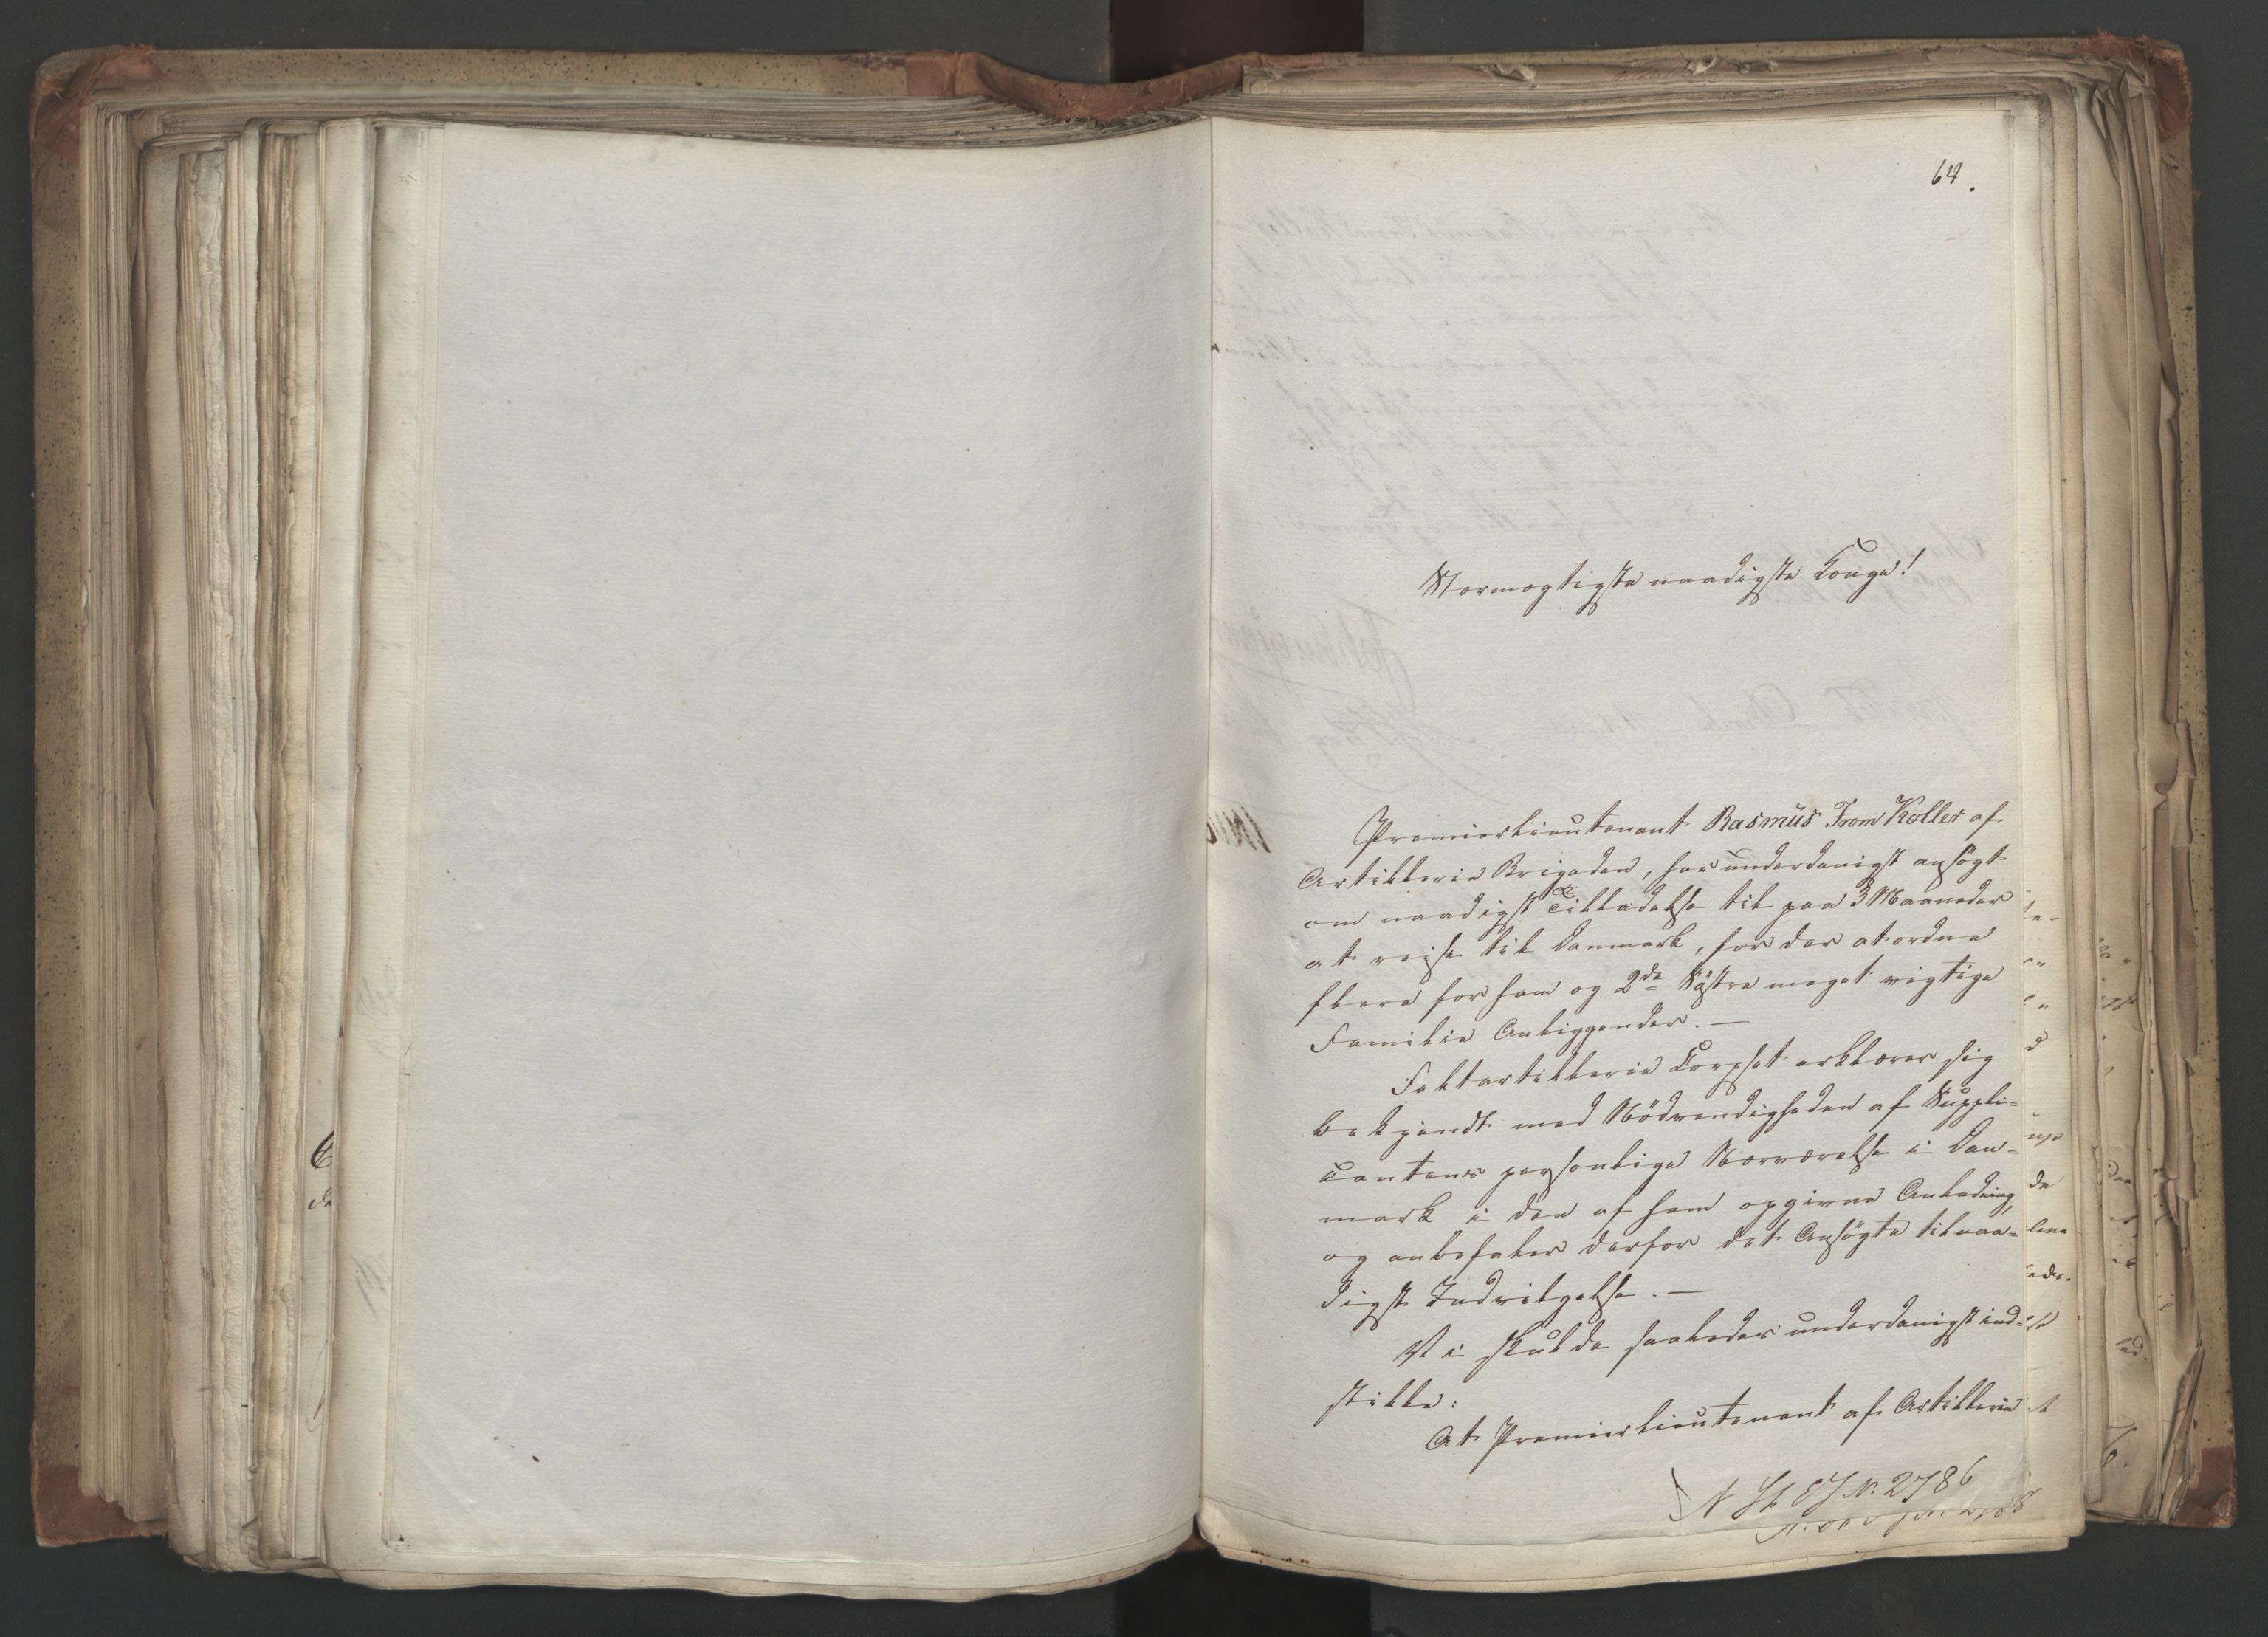 64.
Stormægtigste naadigste Konge!
Premierlieutenant Rasmus Trom Koller af
Artillerie Brigaden, har underdanigst ansögt
om naadigst Tilladelse til paa 3 Maaneder
at reise til Danmark, for der at ordne
flere for ham og 2de Söstre meget vigtige
Familie Anliggender. —
Feltartillerie Corpset erklærer sig
bekjendt med Nödvendigheden af Suppli=
cantens personlige Nærværelse i Dan=
mark i den af ham opgivne Anledning,
og anbefaler derfor det Ansögte til naa=
digst Indvilgelse. —
Vi skulde saaledes underdanigst ind=
stille:
At Premierlieutenant af Artillerie
N St EJ N. 2786